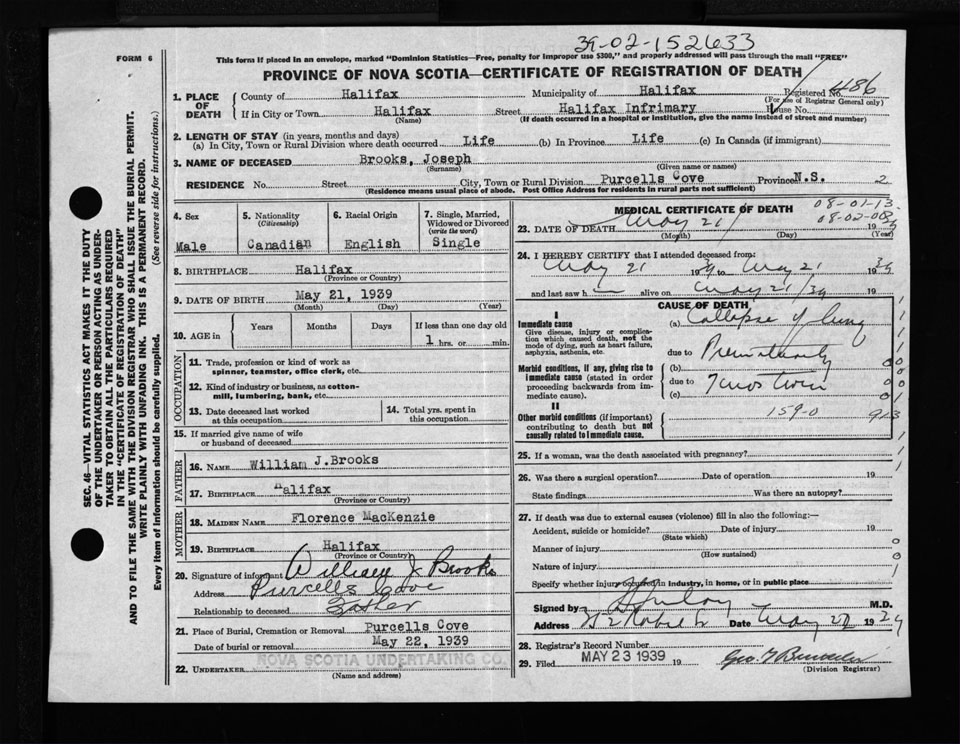 39-02-152633
FORM 6
This form if placed in an envelope, marked "Dominion Statistics—Free, penalty for improper use $300," and properly addressed will pass through the mail "FREE"
PROVINCE OF NOVA SCOTIA—CERTIFICATE OF REGISTRATION OF DEATH
SEC. 46—VITAL STATISTICS ACT MAKES IT THE DUTY
OF THE UNDERTAKER OR PERSON ACTING AS UNDER-
TAKER TO OBTAIN ALL THE PARTICULARS REQUIRED
IN THE "CERTIFICATE OF REGISTRATION OF DEATH"
AND TO FILE THE SAME WITH THE DIVISION REGISTRAR WHO SHALL ISSUE THE BURIAL PERMIT.
WRITE PLAINLY WITH UNFADING INK. THIS IS A PERMANENT RECORD.
Every item of information should be carefully supplied. (See reverse side for instructions.)
1. PLACE OF DEATH
County of Halifax Municipality of Halifax Registered No. 486
(For use of Registrar General only)
If in City or Town Halifax Street Halifax Infrimary House No.
(Name) (If death occurred in a hospital or institution, give the name instead of street and number)
2. LENGTH OF STAY (in years, months and days)
(a) In City, Town or Rural Division where death occurred, Life (b) In Province Life (c) In Canada (if immigrant)
3. NAME OF DECEASED Brooks, Joseph
(Surname) (Given name or names)
RESIDENCE No. Street City, Town or Rural Division Purcells Cove Province N.S. 2
(Residence means usual place of abode. Post Office Address for residents in rural parts not sufficient)
4. Sex
Male
5. Nationality
(Citizenship)
Canadian
6. Racial Origin
English
7. Single, Married,
Widowed or Divorced
(write the word)
Single
8. BIRTHPLACE Halifax
(Province or Country)
9. DATE OF BIRTH May 21, 1939
(Month) (Day) (Year)
10. AGE in
Years Months Days If less than one day old
1 hrs. or min.
OCCUPATION
11. Trade, profession or kind of work as
spinner, teamster, office clerk, etc.
12. Kind of industry or business, as cotton-
mill, lumbering, bank, etc.
13. Date deceased last worked
at this occupation
14. Total yrs. spent in
this occupation
15. If married give name of wife
or husband of deceased
FATHER
16. NAME William J. Brooks
17. BIRTHPLACE Halifax
(Province or Country)
MOTHER
18. MAIDEN NAME Florence MacKenzie
19. BIRTHPLACE Halifax
(Province or Country)
20. Signature of informant William J Brooks
Address Purcells Cove
Relationship to deceased Father
21. Place of Burial, Cremation or Removal Purcells Cove
Date of burial or removal May 22, 1939
22. UNDERTAKER NOVA SCOTIA UNDERTAKING CO.
(Name and address)
MEDICAL CERTIFICATE OF DEATH
08-01-13
08-02-00
23. DATE OF DEATH May 21 1939
(Month) (Day) (Year)
24. I HEREBY CERTIFY that I attended deceased from:
May 21 1939 to May 21 1939
and last saw h alive on May 21/39 19
CAUSE OF DEATH
I
Immediate cause
Give disease, injury or complica-
tion which caused death, not the
mode of dying, such as heart failure,
asphyxia, asthenia, etc.
(a) Collapse of lung
due to Prematurity
Morbid conditions, if any, giving rise to
immediate cause (stated in order
proceeding backwards from im-
mediate cause).
(b)
due to
(c)
II
Other morbid conditions (if important)
contributing to death but not
causally related to immediate cause.
159-0
25. If a woman, was the death associated with pregnancy?
26. Was there a surgical operation? Date of operation 19
State findings Was there an autopsy?
27. If death was due to external causes (violence) fill in also the following:—
Accident, suicide or homicide? Date of injury 19
(State which)
Manner of injury
(How sustained)
Nature of injury
Specify whether injury occurred in industry, in home, or in public place
Signed by M.D.
Address Date May 22 1939
28. Registrar's Record Number
29. Filed MAY 23 1939 19
(Division Registrar)